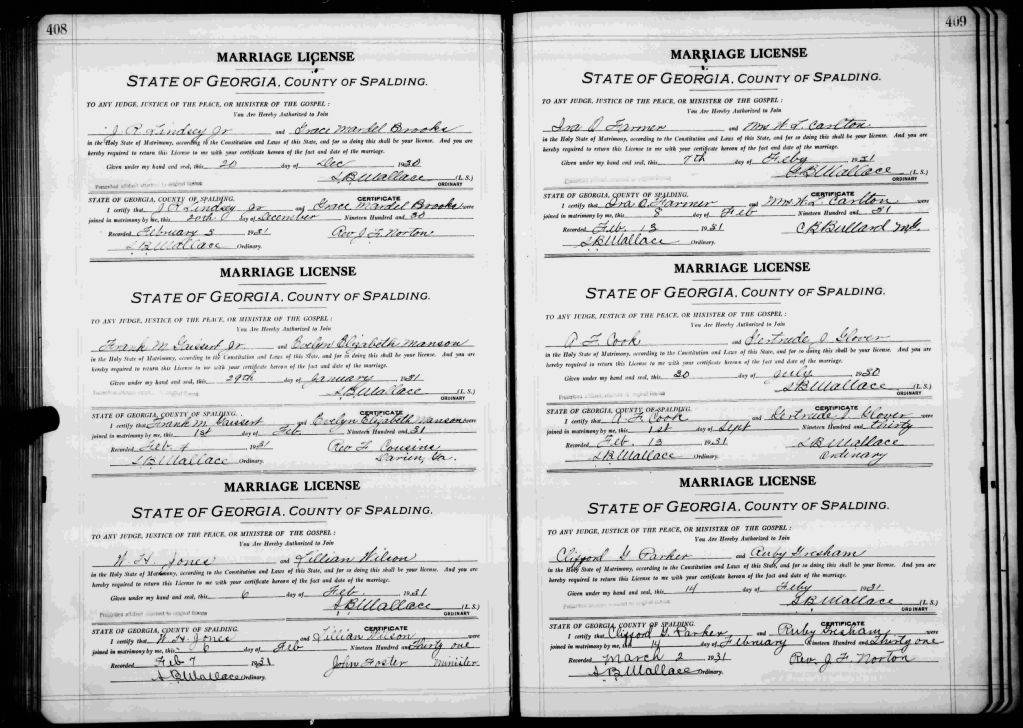 408
MARRIAGE LICENSE
STATE OF GEORGIA, COUNTY OF SPALDING.
TO ANY JUDGE, JUSTICE OF THE PEACE, OR MINISTER OF THE GOSPEL:
You Are Hereby Authorized to Join
J. R. Lindsey Jr and Grace Mardel Brooks
in the Holy State of Matrimony, according to the Constitution and Laws of this State, and for so doing this shall be your license. And you are
hereby required to return this License to me with your certificate hereon of the fact and date of the marriage.
Given under my hand and seal, this 20 day of Dec 1930
S.B. Wallace (L. S.)
Prescribed affidavit attached to original license ORDINARY
STATE OF GEORGIA, COUNTY OF SPALDING. CERTIFICATE
I certify that J. R. Lindsey Jr and Grace Mardel Brooks were
joined in matrimony by me, this 20th day of December Nineteen Hundred and 30
Recorded February 3 1931 Rev J. F. Norton
S.B. Wallace Ordinary.
MARRIAGE LICENSE
STATE OF GEORGIA, COUNTY OF SPALDING.
TO ANY JUDGE, JUSTICE OF THE PEACE, OR MINISTER OF THE GOSPEL:
You Are Hereby Authorized to Join
Frank M. Gaissert Jr. and Evelyn Elizabeth Manson
in the Holy State of Matrimony, according to the Constitution and Laws of this State, and for so doing this shall be your license. And you are
hereby required to return this License to me with your certificate hereon of the fact and date of the marriage.
Given under my hand and seal, this 29th day of January 1931
S.B. Wallace (L. S.)
Prescribed affidavit attached to original license ORDINARY
STATE OF GEORGIA, COUNTY OF SPALDING. CERTIFICATE
I certify that Frank M. Gaissert and Evelyn Elizabeth Manson were
joined in matrimony by me, this 1st day of Feb Nineteen Hundred and 31
Recorded Feb. 4 1931 Rev F. Cousins
S.B. Wallace Ordinary. Darien, Va.
MARRIAGE LICENSE
STATE OF GEORGIA, COUNTY OF SPALDING.
TO ANY JUDGE, JUSTICE OF THE PEACE, OR MINISTER OF THE GOSPEL:
You Are Hereby Authorized to Join
W. H. Jones and Lillian Wilson
in the Holy State of Matrimony, according to the Constitution and Laws of this State, and for so doing this shall be your license. And you are
hereby required to return this License to me with your certificate hereon of the fact and date of the marriage.
Given under my hand and seal, this 6 day of Feb. 1931
S.B. Wallace (L. S.)
Prescribed affidavit attached to original license ORDINARY
STATE OF GEORGIA, COUNTY OF SPALDING. CERTIFICATE
I certify that W. H. Jones and Lillian Wilson were
joined in matrimony by me, this 6 day of Feb Nineteen Hundred and Thirty one
Recorded Feb 7 1931 John Foster minister
S.B. Wallace Ordinary.
409
MARRIAGE LICENSE
STATE OF GEORGIA, COUNTY OF SPALDING.
TO ANY JUDGE, JUSTICE OF THE PEACE, OR MINISTER OF THE GOSPEL:
You Are Hereby Authorized to Join
Ira O Farmer and Mrs W. L. Carlton
in the Holy State of Matrimony, according to the Constitution and Laws of this State, and for so doing this shall be your license. And you are
hereby required to return this License to me with your certificate hereon of the fact and date of the marriage.
Given under my hand and seal, this 7th day of Feby 1931
S.B. Wallace (L. S.)
Prescribed affidavit attached to original license ORDINARY
STATE OF GEORGIA, COUNTY OF SPALDING. CERTIFICATE
I certify that Ira O. Farmer and Mrs W. L. Carlton were
joined in matrimony by me, this 8 day of Feb Nineteen Hundred and 31
Recorded Feb. 13 1931 C B Bullard M.G.
S.B. Wallace Ordinary.
MARRIAGE LICENSE
STATE OF GEORGIA, COUNTY OF SPALDING.
TO ANY JUDGE, JUSTICE OF THE PEACE, OR MINISTER OF THE GOSPEL:
You Are Hereby Authorized to Join
A. F. Cook and Gertrude J. Glover
in the Holy State of Matrimony, according to the Constitution and Laws of this State, and for so doing this shall be your license. And you are
hereby required to return this License to me with your certificate hereon of the fact and date of the marriage.
Given under my hand and seal, this 30 day of July 1930
S.B. Wallace (L. S.)
Prescribed affidavit attached to original license ORDINARY
STATE OF GEORGIA, COUNTY OF SPALDING. CERTIFICATE
I certify that A. F. Cook and Gertrude J. Glover were
joined in matrimony by me, this 1st day of Sept Nineteen Hundred and thirty
Recorded Feb. 13 1931 S.B. Wallace
S.B. Wallace Ordinary. Ordinary
MARRIAGE LICENSE
STATE OF GEORGIA, COUNTY OF SPALDING.
TO ANY JUDGE, JUSTICE OF THE PEACE, OR MINISTER OF THE GOSPEL:
You Are Hereby Authorized to Join
Clifford G. Parker and Ruby Gresham
in the Holy State of Matrimony, according to the Constitution and Laws of this State, and for so doing this shall be your license. And you are
hereby required to return this License to me with your certificate hereon of the fact and date of the marriage.
Given under my hand and seal, this 14 day of Feby 1931
S.B. Wallace (L. S.)
Prescribed affidavit attached to original license ORDINARY
STATE OF GEORGIA, COUNTY OF SPALDING. CERTIFICATE
I certify that Clifford G. Parker and Ruby Gresham were
joined in matrimony by me, this 14 day of February Nineteen Hundred and Thirty one
Recorded March 2 1931 Rev. J. F. Norton
S.B. Wallace Ordinary.